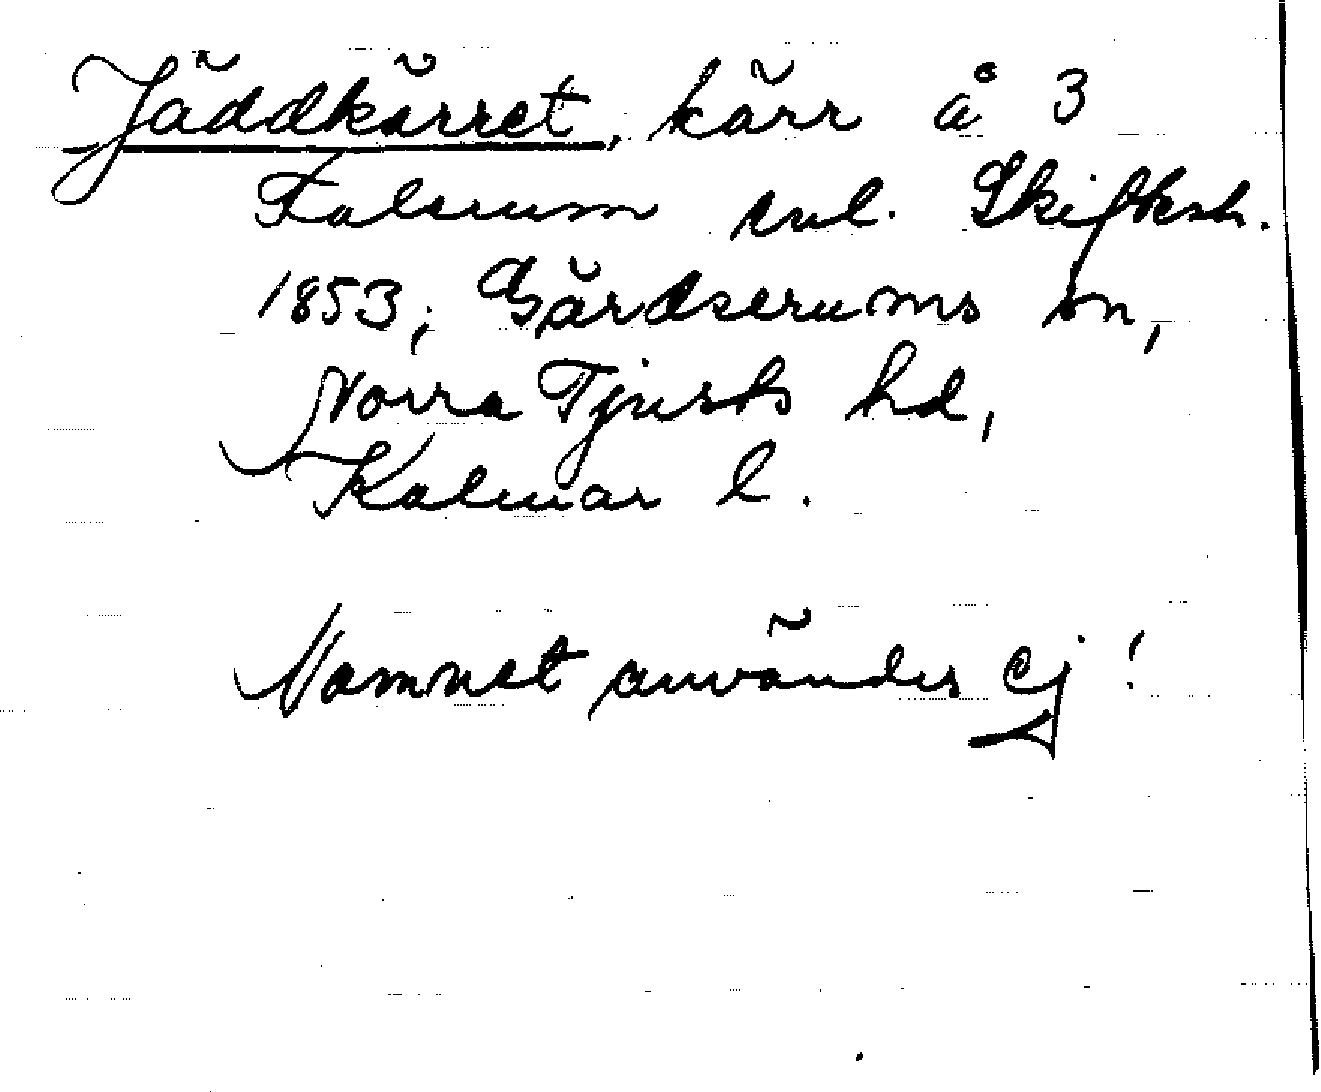 Jäddkärret, kärr å 3
Falerum enl. Skifteskh.
1853; Gärdserums sn,
Norra Tjusts hd,
Kalmar l.
Namnet användes ej!